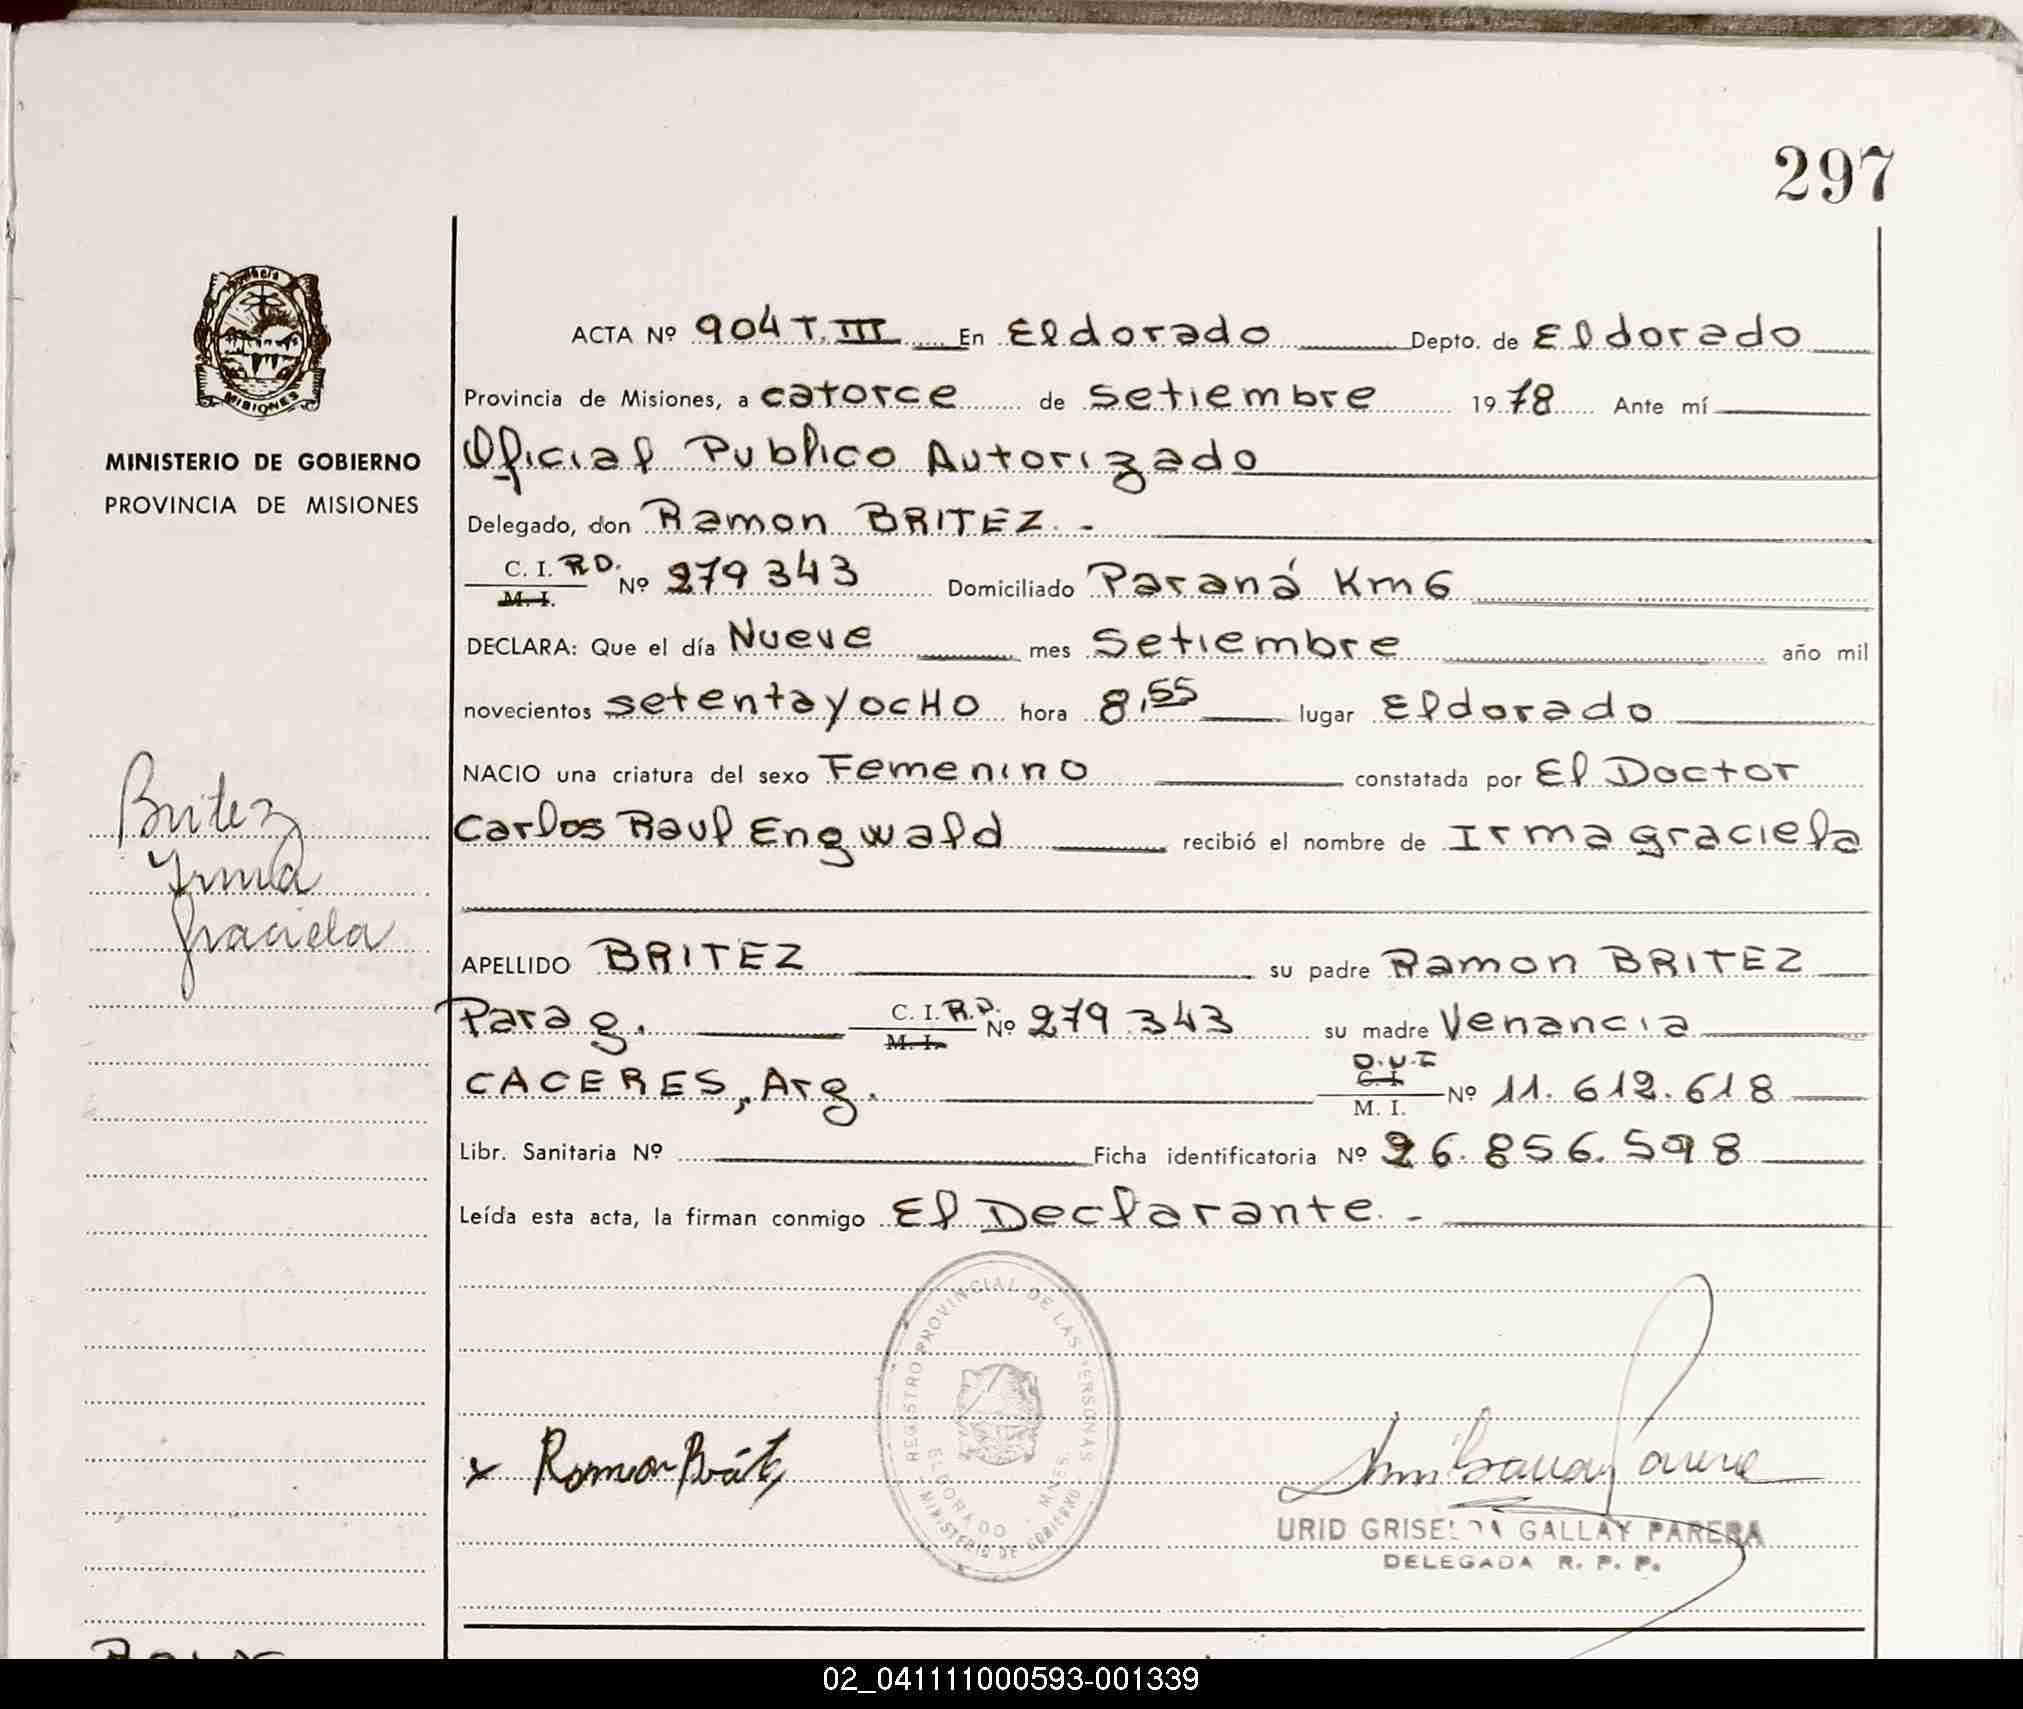 297
Provincia
MISIONES
MINISTERIO DE GOBIERNO
PROVINCIA DE MISIONES
Britez
Yrma
Graciela
ACTA Nº 904 T. III En Eldorado Depto. de Eldorado
Provincia de Misiones, a catorce de Setiembre 1978 Ante mí
Oficial Publico Autorizado
Delegado, don Ramon BRITEZ.-
C. I. R.D. M. I. Nº 279343 Domiciliado Paraná Km6
DECLARA: Que el día Nueve mes Setiembre año mil
novecientos setentayocHo hora 8,55 lugar Eldorado
NACIO una criatura del sexo Femenino constatada por El Doctor
Carlos Raul Engwald recibió el nombre de Irma graciela
APELLIDO BRITEZ su padre Ramon BRITEZ
Parag. C. I. R.D. M. I. Nº 279.343 su madre Venancia
CACERES, Arg. D.U.I C. I. M. I. Nº 11.612.618
Libr. Sanitaria Nº Ficha identificatoria Nº 26.856.598
Leída esta acta, la firman conmigo El Declarante.-
REGISTRO PROVINCIAL DE LAS PERSONAS
ELDORADO - MNES.
MINISTERIO DE GOBIERNO
x Ramon Britez
URID GRISELDA GALLAY PARERA
DELEGADA R. P. P.
02_041111000593-001339